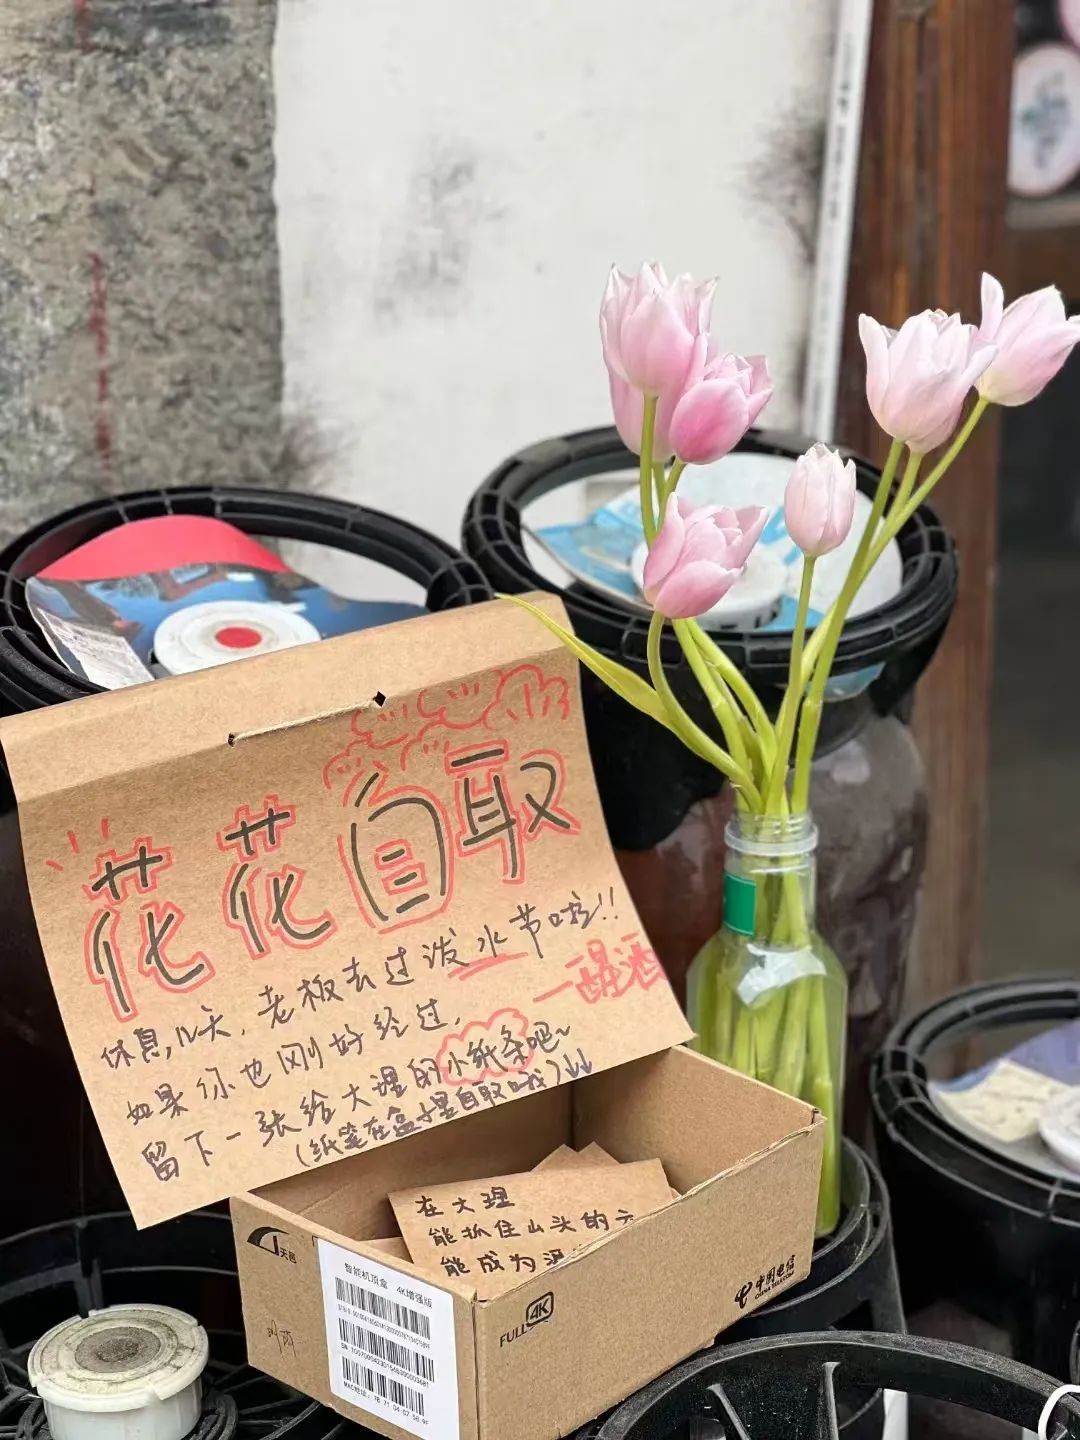 花花自取
休息几天,老板去过泼水节啦!!
一醒酒
如果你也刚好经过,
留下一张给大理的小纸条吧~
(纸笔在盒子里自取哦)↓↓
在大理
能抓住山头的云
能成为
天邑
智能机顶盒 4K增强版
FULL 4K
中国电信
CHINA TELECOM